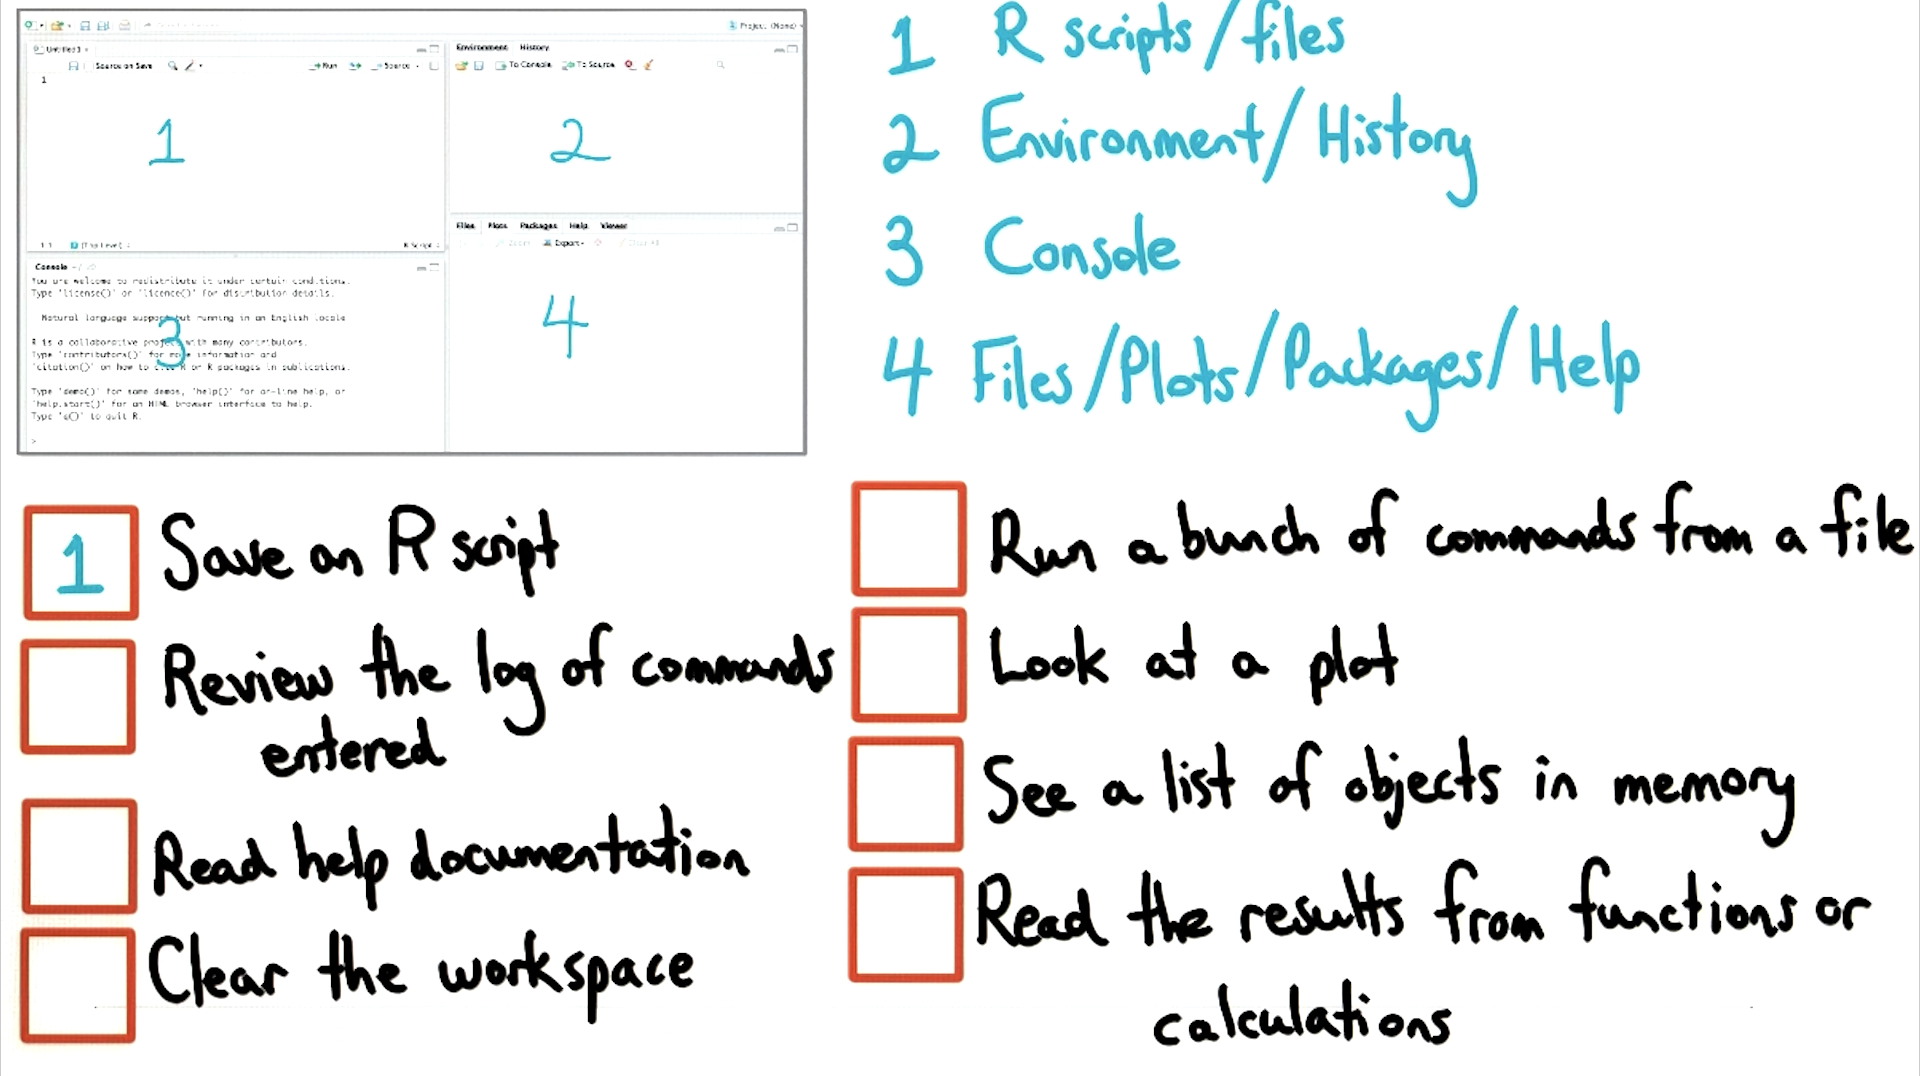 Project: (None)
Untitled1
Source on Save
Run
Source
1
1
1:1
(Top Level)
R Script
Environment History
To Console
To Source
2
Files Plots Packages Help Viewer
Zoom
Export
Clear All
4
Console ~/
You are welcome to redistribute it under certain conditions.
Type 'license()' or 'licence()' for distribution details.
Natural language support but running in an English locale
3
R is a collaborative project with many contributors.
Type 'contributors()' for more information and
'citation()' on how to R or R packages in publications.
Type 'demo()' for some demos, 'help()' for on-line help, or
'help.start()' for an HTML browser interface to help.
Type 'q()' to quit R.
>
1 R scripts/files
2 Environment/History
3 Console
4 Files/Plots/Packages/Help
1 Save an R script
Review the log of commands
entered
Read help documentation
Clear the workspace
Run a bunch of commands from a file
Look at a plot
See a list of objects in memory
Read the results from functions or
calculations